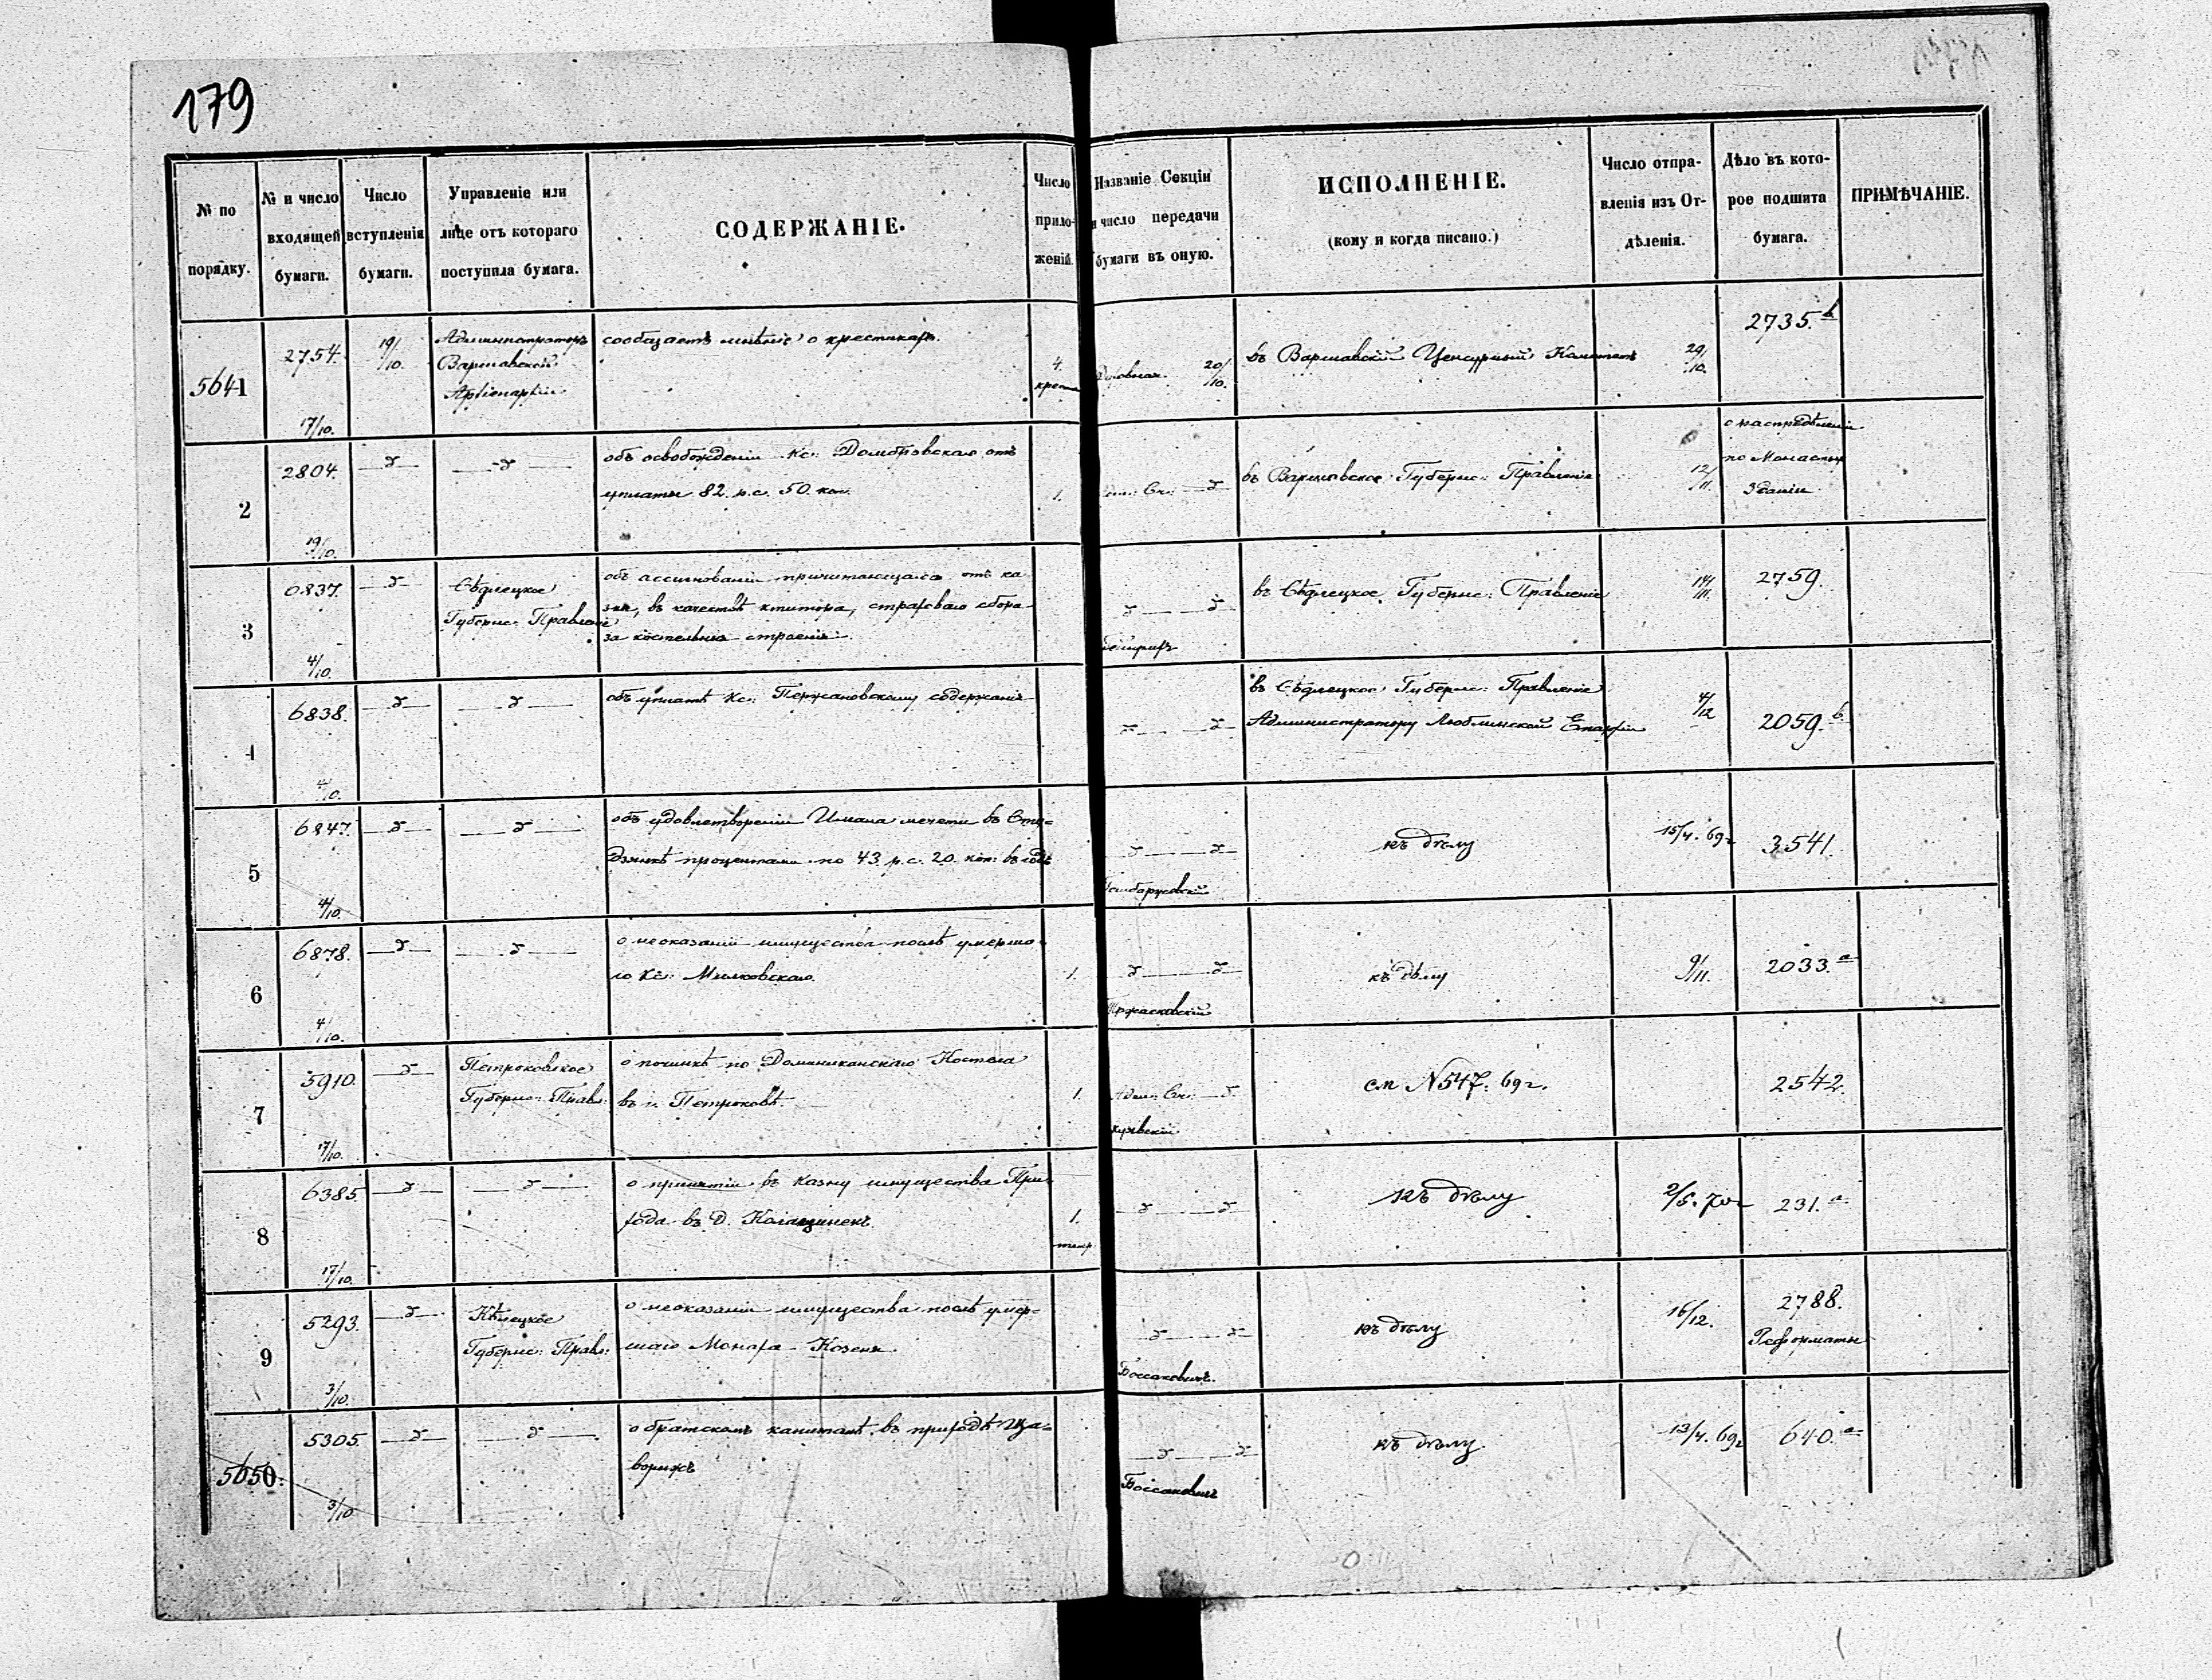 179
№ по порядку.
№ и число входящей бумаги.
Число вступленія бумаги.
Управленіе или лице отъ котораго поступила бумага.
СОДЕРЖАНІЕ.
Число прило-женій.
Названіе Секціи и число передачи бумаги въ оную.
ИСПОЛНЕНІЕ.
(кому и когда писано.)
Число отпра-вленія изъ От-дѣленія.
Дѣло въ кото-рое подшита бумага.
ПРИМѢЧАНІЕ.
5641
2754.
17/10.
19/10.
Администраторъ
Варшавской
Архіепархіи
сообщаетъ мнѣніе о крестикахъ.
4.
20/10.
въ Варшавскій Ценсурный Комитетъ
29/10.
2735.b
2
2804.
19/10.
объ освобожденіи Кс: Домбровскаго отъ
уплаты 82. р.с. 50. коп.
1.
въ Варшавское Губернс: Правленіе
12/11.
о распредѣленіи
по Монастыр
Зданіи
3
6837.
4/10.
Сѣдлецкое
Губернс: Правленіе
объ ассигнованіи причитающагося отъ ка-
зны, въ качествѣ ктитора, страховаго сбора
за костельныя строенія.
въ Сѣдлецкое Губернс: Правленіе
14/11.
2759.
4
6838.
4/10.
объ уплатѣ Кс: Пержановскому содержанія
въ Сѣдлецкое Губернс: Правленіе
Администратору Люблинской Епархіи
4/12
2059.b
5
6847.
4/10.
объ удовлетвореніи Имама мечети въ Сту-
дзянкѣ процентами по 43. р.с. 20. коп: въ годъ
къ дѣлу
15/4. 69г
3541.
6
6878.
4/10.
о неоказаніи имущества послѣ умерша-
го Кс: Милковскаго.
1.
къ дѣлу
9/11.
2033.a
7
5910.
17/10.
Петроковское
Губернс: Правл:
о починкѣ по Доминиканскаго Костела
въ г. Петроковѣ.
1.
см №547. 69г.
2542.
8
6385.
17/10.
о принятіи въ казну имущества При-
хода въ д.
1.
къ дѣлу
2/5. 70г
231.a
9
5293.
3/10.
Кѣлецкое
Губернс: Правл:
о неоказаніи имущества послѣ умер-
шаго Монаха Козеня.
Боссаковичъ.
къ дѣлу
16/12.
2788.
Реформаты
5650.
5305.
3/10
о братскомъ капиталѣ въ приходѣ Ща-
ворижъ
Боссаковичъ
къ дѣлу.
13/4. 69г
640.a